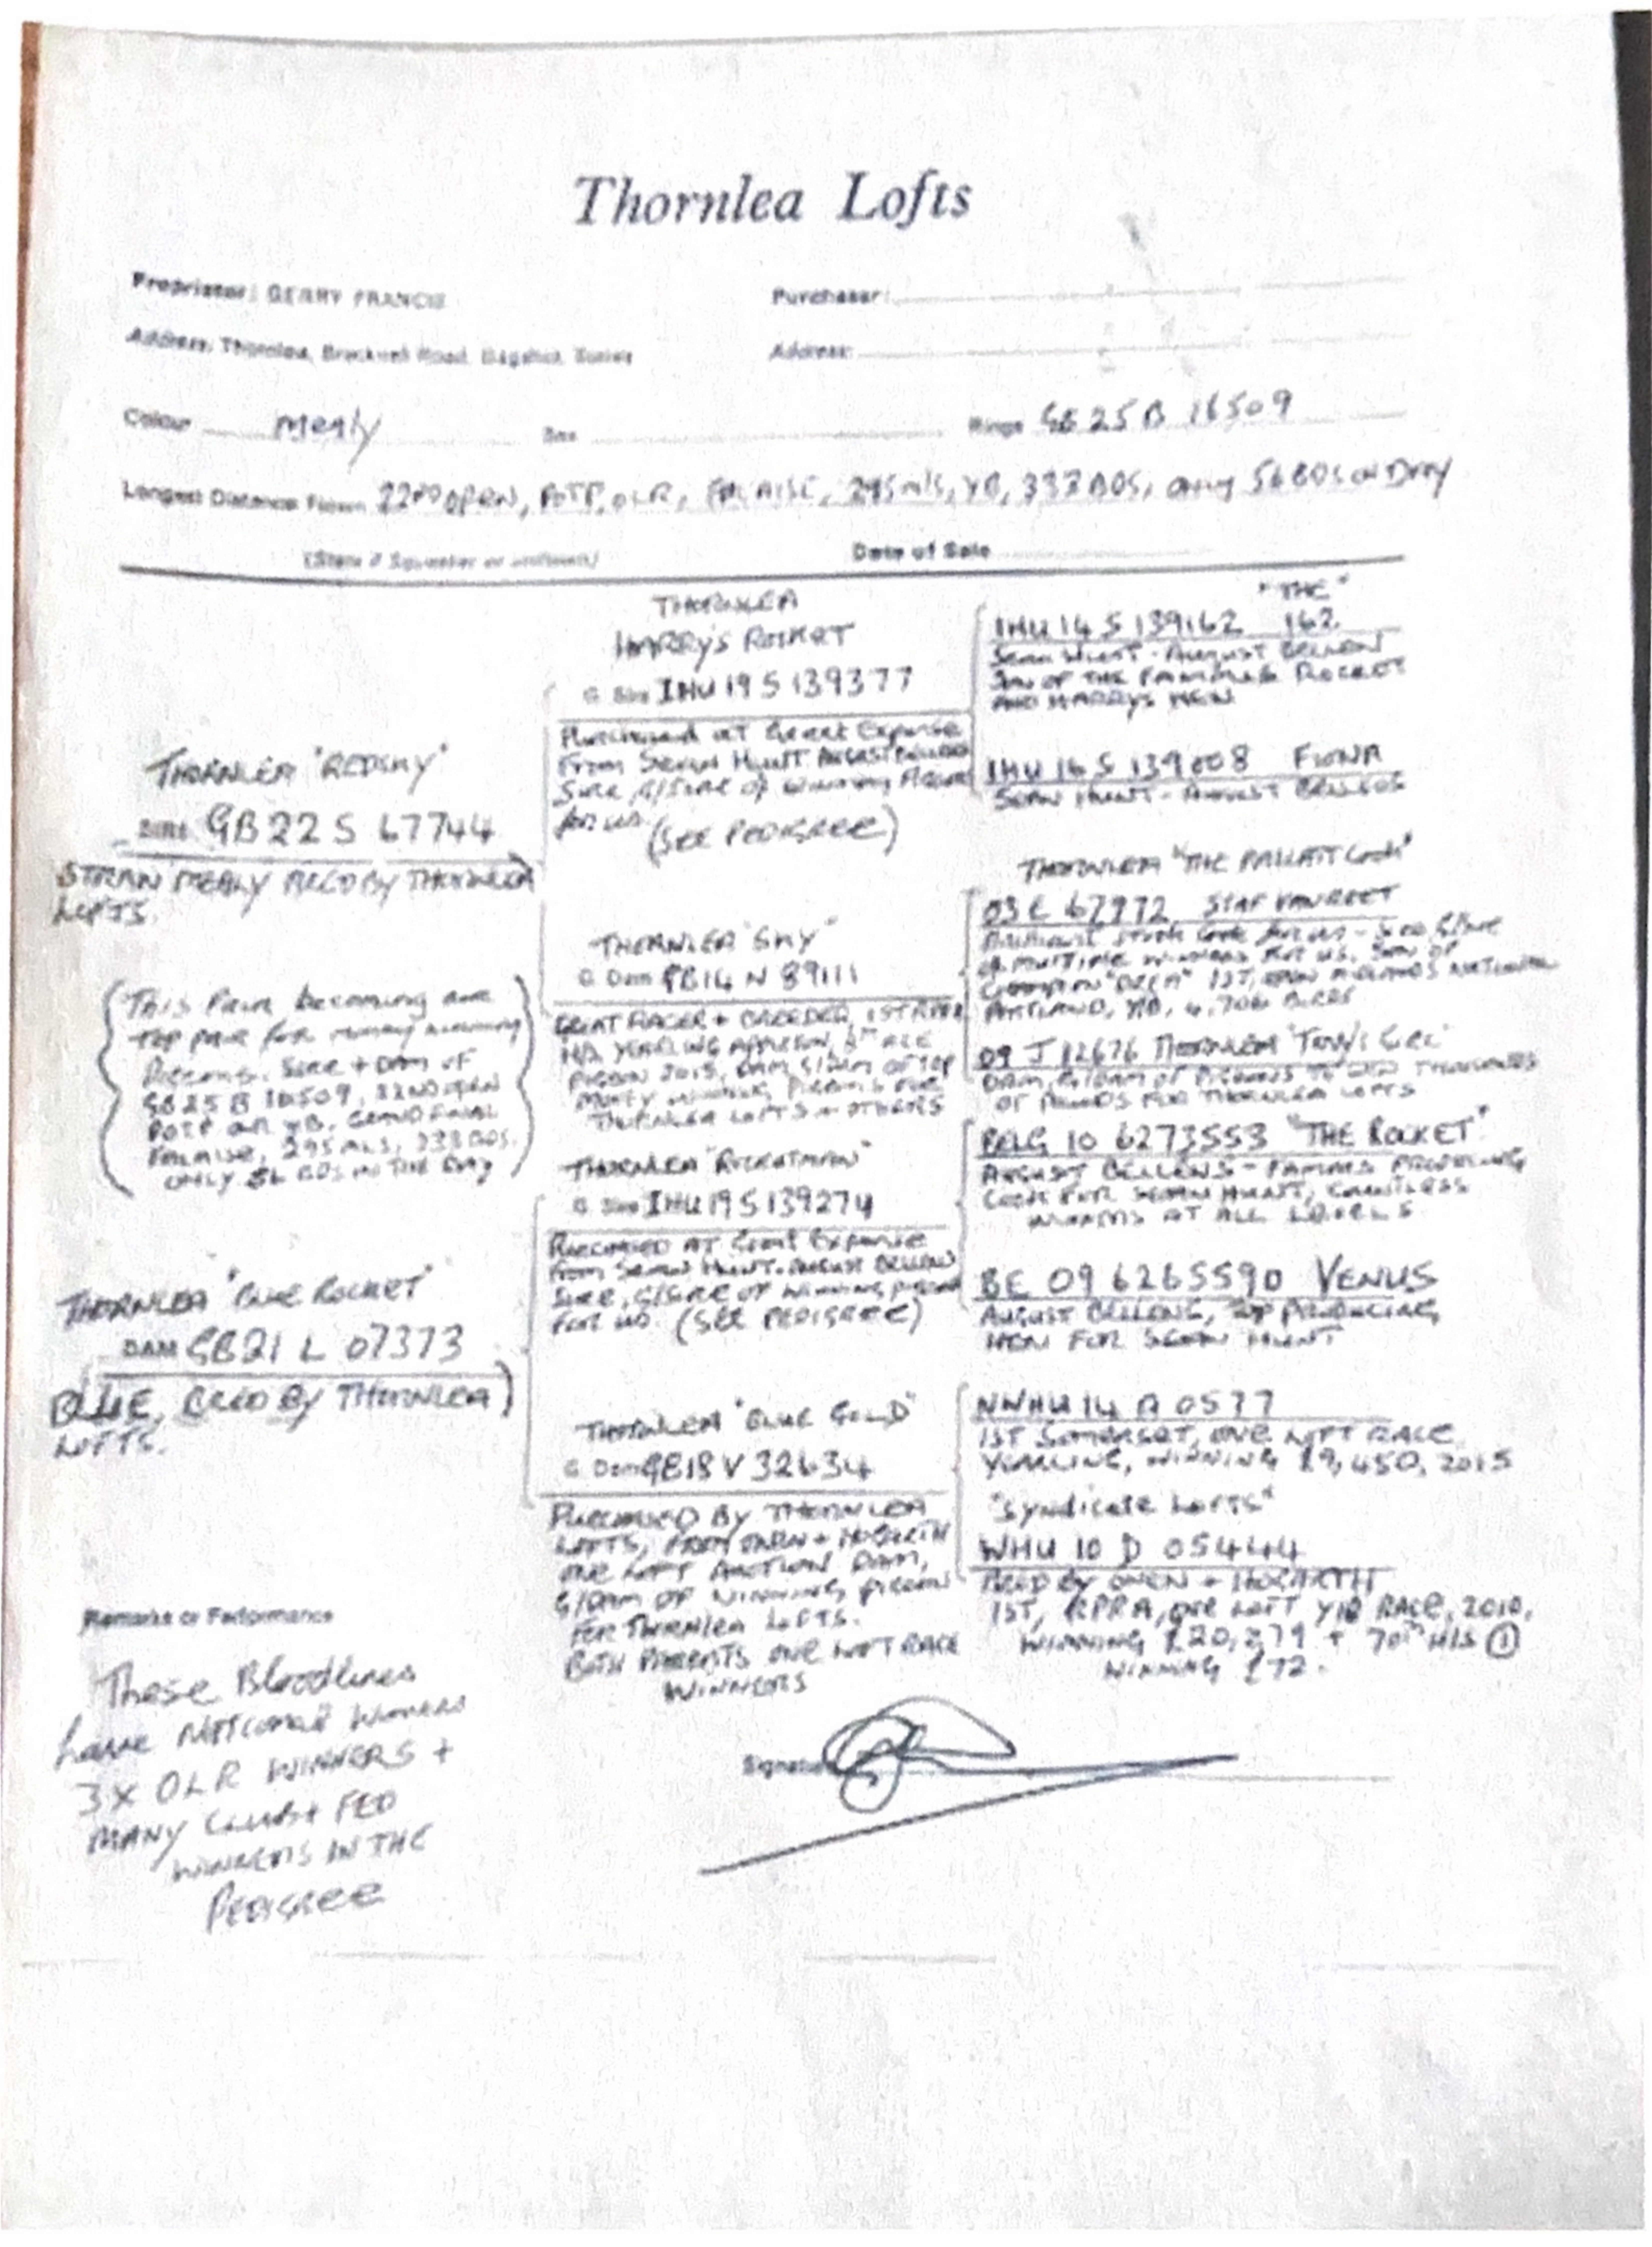 Thornlea Lofts
Proprietor: GERRY FRANCIS
Purchaser:
Address: Thornlea, Bracknell Road, Bagshot, Surrey
Address:
Colour Mealy Sex Rings GB 25 B 16509
Longest Distance Flown 22ND OPEN, POTP, OLR, FALAISE, 295 mls, YB, 333 BDS, only 56 BDS on Day
(State if Squeaker or unflown) Date of Sale
THORNLEA "REDSKY"
Sire GB 22 S 67744
STRAIN MEALY BRED BY THORNLEA
LOFTS.
(This Pair becoming our
top pair for money winning
Pigeons. Sire + Dam of
GB 25 B 16509, 22ND OPEN
POTP OLR YB, GRAND FINAL
FALAISE, 295 MLS, 333 BDS.
ONLY 56 BDS IN THE DAY)
THORNLEA "BLUE ROCKET"
DAM GB21 L 07373
BLUE, BRED BY THORNLEA
LOFTS.
THORNLEA
HARRY'S ROCKET
G Sire IHU 19 S 139377
Purchased at Great Expense
From Sean Hunt August Bellens
Sire, G/Sire of Winning Pigeons
for us. (SEE PEDIGREE)
THORNLEA "SKY"
G Dam GB14 N 89111
GREAT RACER + BREEDER, 1ST
PIGEON 2015, DAM, G/DAM OF TOP
MONEY WINNING PIGEONS FOR
THORNLEA LOFTS + OTHERS
THORNLEA "ROCKETMAN"
G Sire IHU 19 S 139274
PURCHASED AT Great Expense
From Sean Hunt. August Bellens
Sire, G/SIRE OF Winning pigeons
FOR US. (SEE PEDIGREE)
THORNLEA "BLUE GOLD"
G Dam GB18 V 32634
PURCHASED BY THORNLEA
LOFTS, FROM OWEN + HOGARTH
ONE LOFT AUCTION DAM,
G/DAM OF WINNING PIGEON
FOR THORNLEA LOFTS.
BOTH PARENTS ONE LOFT RACE
WINNERS
"THE"
IHU 14 S 139162 162
Sean Hunt - August Bellens
SON OF THE FAMOUS ROCKET
AND HARRYS HEN
IHU 16 S 139008 FIONA
SEAN HUNT - AUGUST BELLENS
03 E 67972 STAF VAN REET
Brilliant Stock Cock for us - G/Sire
OF MULTIPLE WINNERS FOR US. SON OF
CHAMPION 1ST, OPEN MIDLANDS NATIONAL
PORTLAND, YB, 4,706 BIRDS
09 J 12676 THORNLEA
DAM, G/DAM OF PIGEONS TO WIN THOUSANDS
OF POUNDS FOR THORNLEA LOFTS
BELG 10 6273553 "THE ROCKET"
AUGUST BELLENS - FAMOUS PRODUCING
COCK FOR SEAN HUNT, COUNTLESS
WINNERS AT ALL LEVELS
BE 09 6265590 VENUS
AUGUST BELLENS, TOP PRODUCING
HEN FOR SEAN HUNT
NWHU 14 A 0577
1ST SOMERSET, ONE LOFT RACE
YEARLING, WINNING £9,450, 2015
"Syndicate Lofts"
WHU 10 D 05444
BRED BY OWEN + HOGARTH
1ST, RPRA, ONE LOFT YB RACE, 2010,
WINNING £20,279 + 70TH H/S ①
WINNING £72.
Remarks or Performance
These Bloodlines
have National Winners
3X OLR WINNERS +
MANY CLUB + FED
WINNERS IN THE
PEDIGREE
Signature